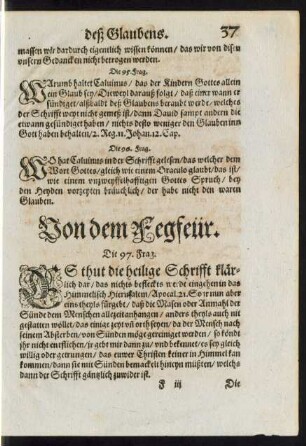 deß Glaubens. 37
massen wir dardurch eigentlich wissen können / das wir von disen
unsern Gedancken nicht betrogen werden.
Die 95. Frag.
WArumb haltet Caluinus / das der Kindern Gottes allein
ein Glaub sey / Derweyl darauß folgt / daß einer wann er
sündiget / alßbald deß Glaubens beraubt werde / welches
der Schrifft weyt nicht gemeß ist / dann Dauid sampt andern die
etwann gesündiget haben / nichts desto weniger den Glauben inn
Gott haben behalten / 2. Reg. 11. Johan. 12. Cap.
Die 96. Frag.
WO hat Caluinus in der Schrifft gelesen / das welcher dem
Wort Gottes / gleich wie einem Oraculo glaubt / das ist /
wie einem unzweyffelhafftigen Gottes Spruch / bey
den Heyden vorzeyten bräuchlich / der habe nicht den waren
Glauben.
Von dem Fegfeür.
Die 97. Frag.
ES thut die heilige Schrifft klär-
lich dar / das nichts beflecktes werde eingehen in das
Himmelisch Hierusalem / Apocal. 21. So ir nun aber
eins theyls fürgebt / daß die Masen oder Anmahl der
Sünde dem Menschen allezeit anhangen / anders theyls auch nit
gestatten wöllet / das einige zeyt und orth seyen / da der Mensch nach
seinem Absterben / von den Sünden möge gereiniget werden / so köndt
ihr nicht entfliehen / ir gebt mir dann zu / und bekennet / es sey gleich
willig oder getrungen / das euwer Christen keiner in Himmel kan
kommen / dann sie mit Sünden bemackelt hineyn müßten / welchs
dann der Schrifft gänzlich zuwider ist.
F iii Die